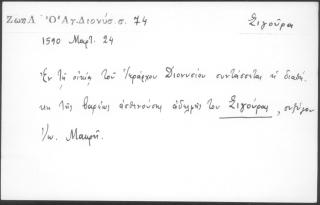 Ζώη Λ. Ὁ Ἅγ. Διονύσ. σ. 74
Σιγοῦρα
1590 Μαρτ. 24
Ἐν τῇ οἰκίᾳ τοῦ Ἱεράρχου Διονυσίου συντάσσεται ἡ διαθή-
κη τῆς βαρέως ἀσθενούσης ἀδελφῆς του Σιγούρας, συζύγου
Ἰω. Μακρῆ.